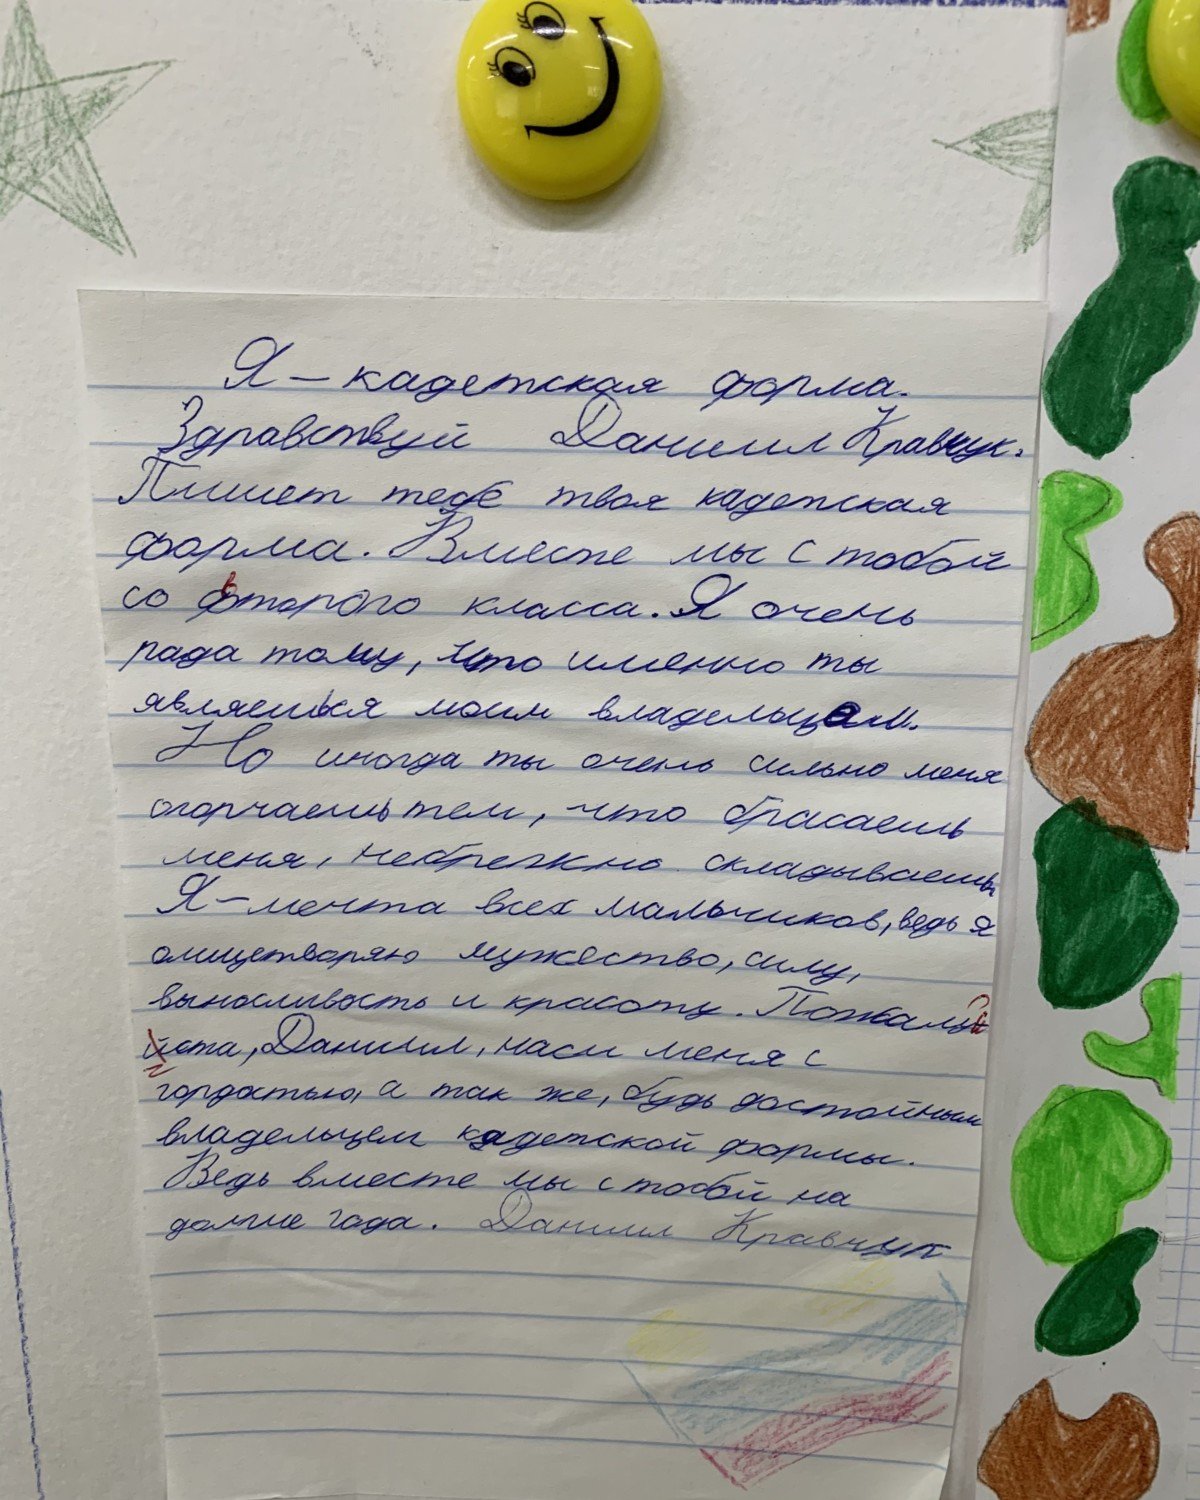 Я – кадетская форма.
Здравствуй Даниил Кравчук.
Пишет тебе твоя кадетская
форма. Вместе мы с тобой
со второго класса. Я очень
рада тому, что именно ты
являешься моим владельцем.
Но иногда ты очень сильно меня
огорчаешь тем, что бросаешь
меня, небрежно складываешь
Я – мечта всех мальчиков, ведь я
олицетворяю мужество, силу,
выносливость и красоту. Пожалуй
йста, Даниил, носи меня с
гордостью, а так же, будь достойным
владельцем кадетской формы.
Ведь вместе мы с тобой на
долгие года. Даниил Кравчук